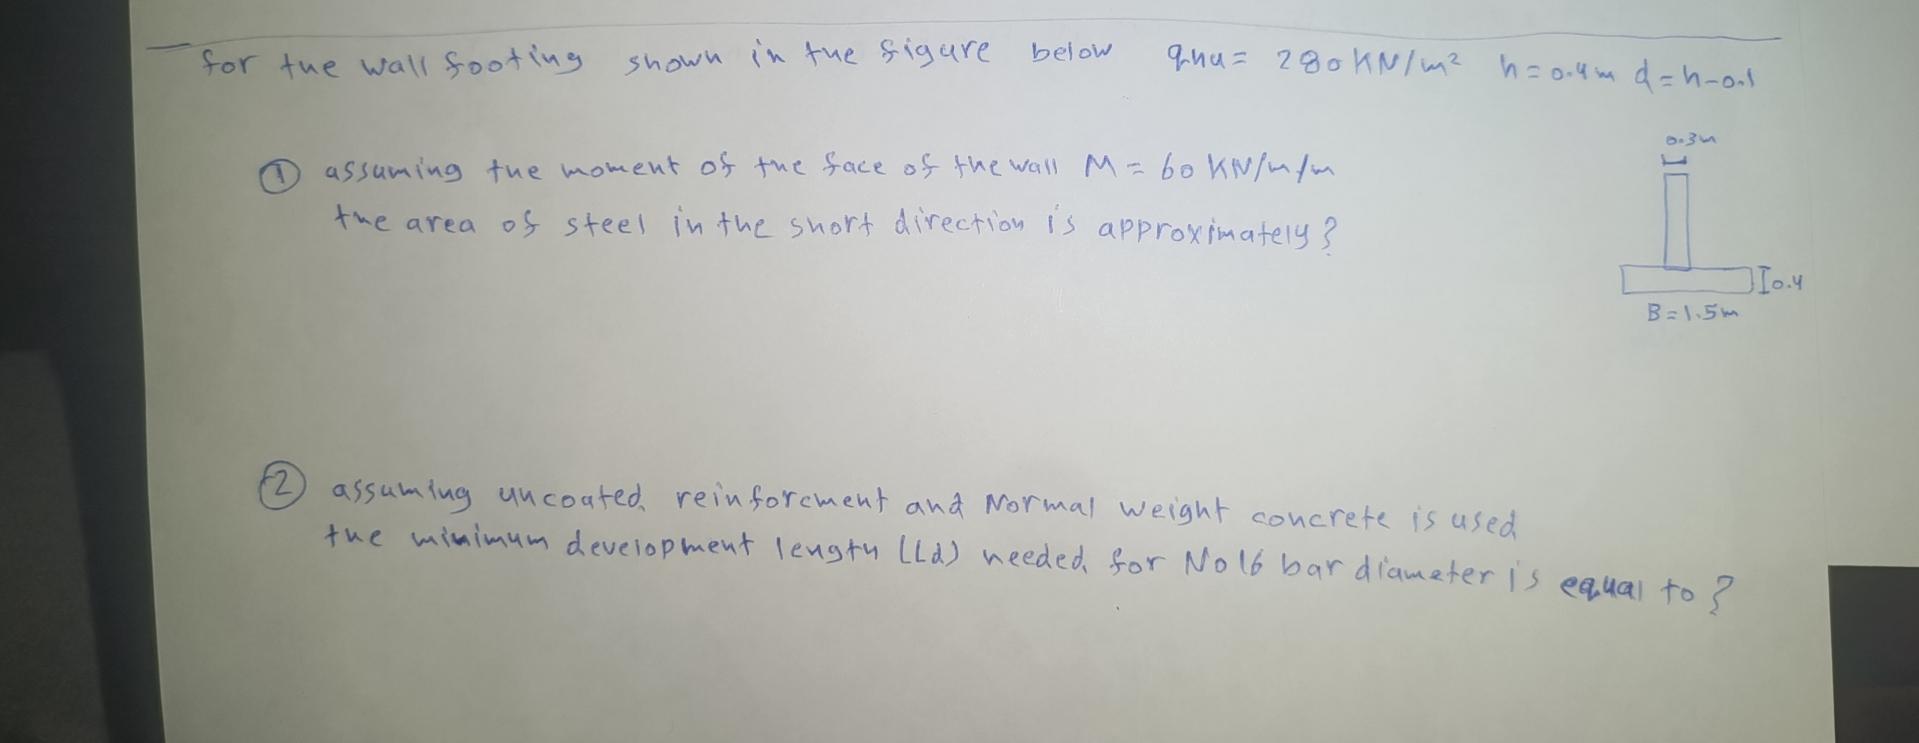 for the wall footing shown in the figure below qnu = 280 KN/m² h=0.4m d=h-0.1
0.3m
① assuming the moment of the face of the wall M = 60 KN/m/m
the area of steel in the short direction is approximately?
0.4
B=1.5m
② assuming uncoated reinforcment and Normal weight concrete is used
the minimum development length (Ld) needed for No16 bar diameter is equal to?